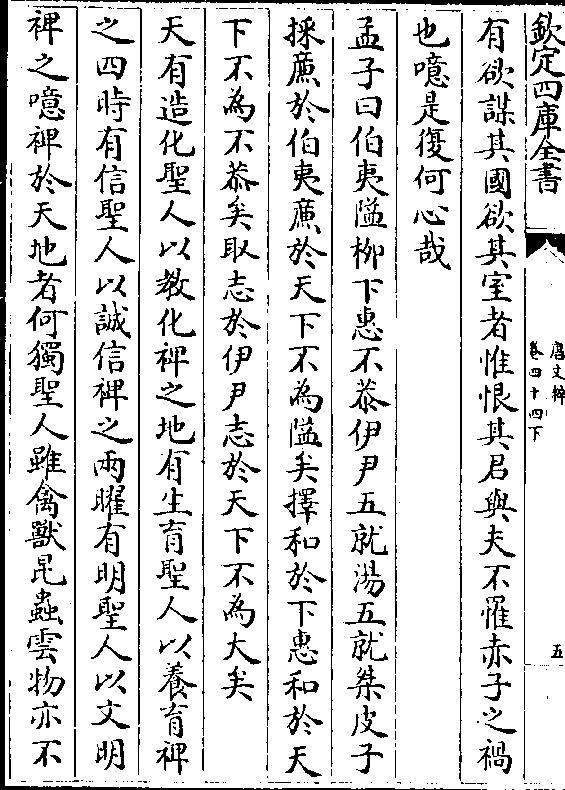 欽定四庫全書
唐文粹
卷四十四下
五
有欲謀其國欲其室者惟恨其君與夫不罹赤子之禍
也噫是復何心哉
孟子曰伯夷隘柳下惠不恭伊尹五就湯五就桀皮子
採廉於伯夷廉於天下不為隘矣擇和於下惠和於天
下不為不恭矣取志於伊尹志於天下不為大矣
天有造化聖人以教化裨之地有生育聖人以養育裨
之四時有信聖人以誠信裨之兩曜有明聖人以文明
裨之噫裨於天地者何獨聖人雖禽獸昆蟲雲物亦不